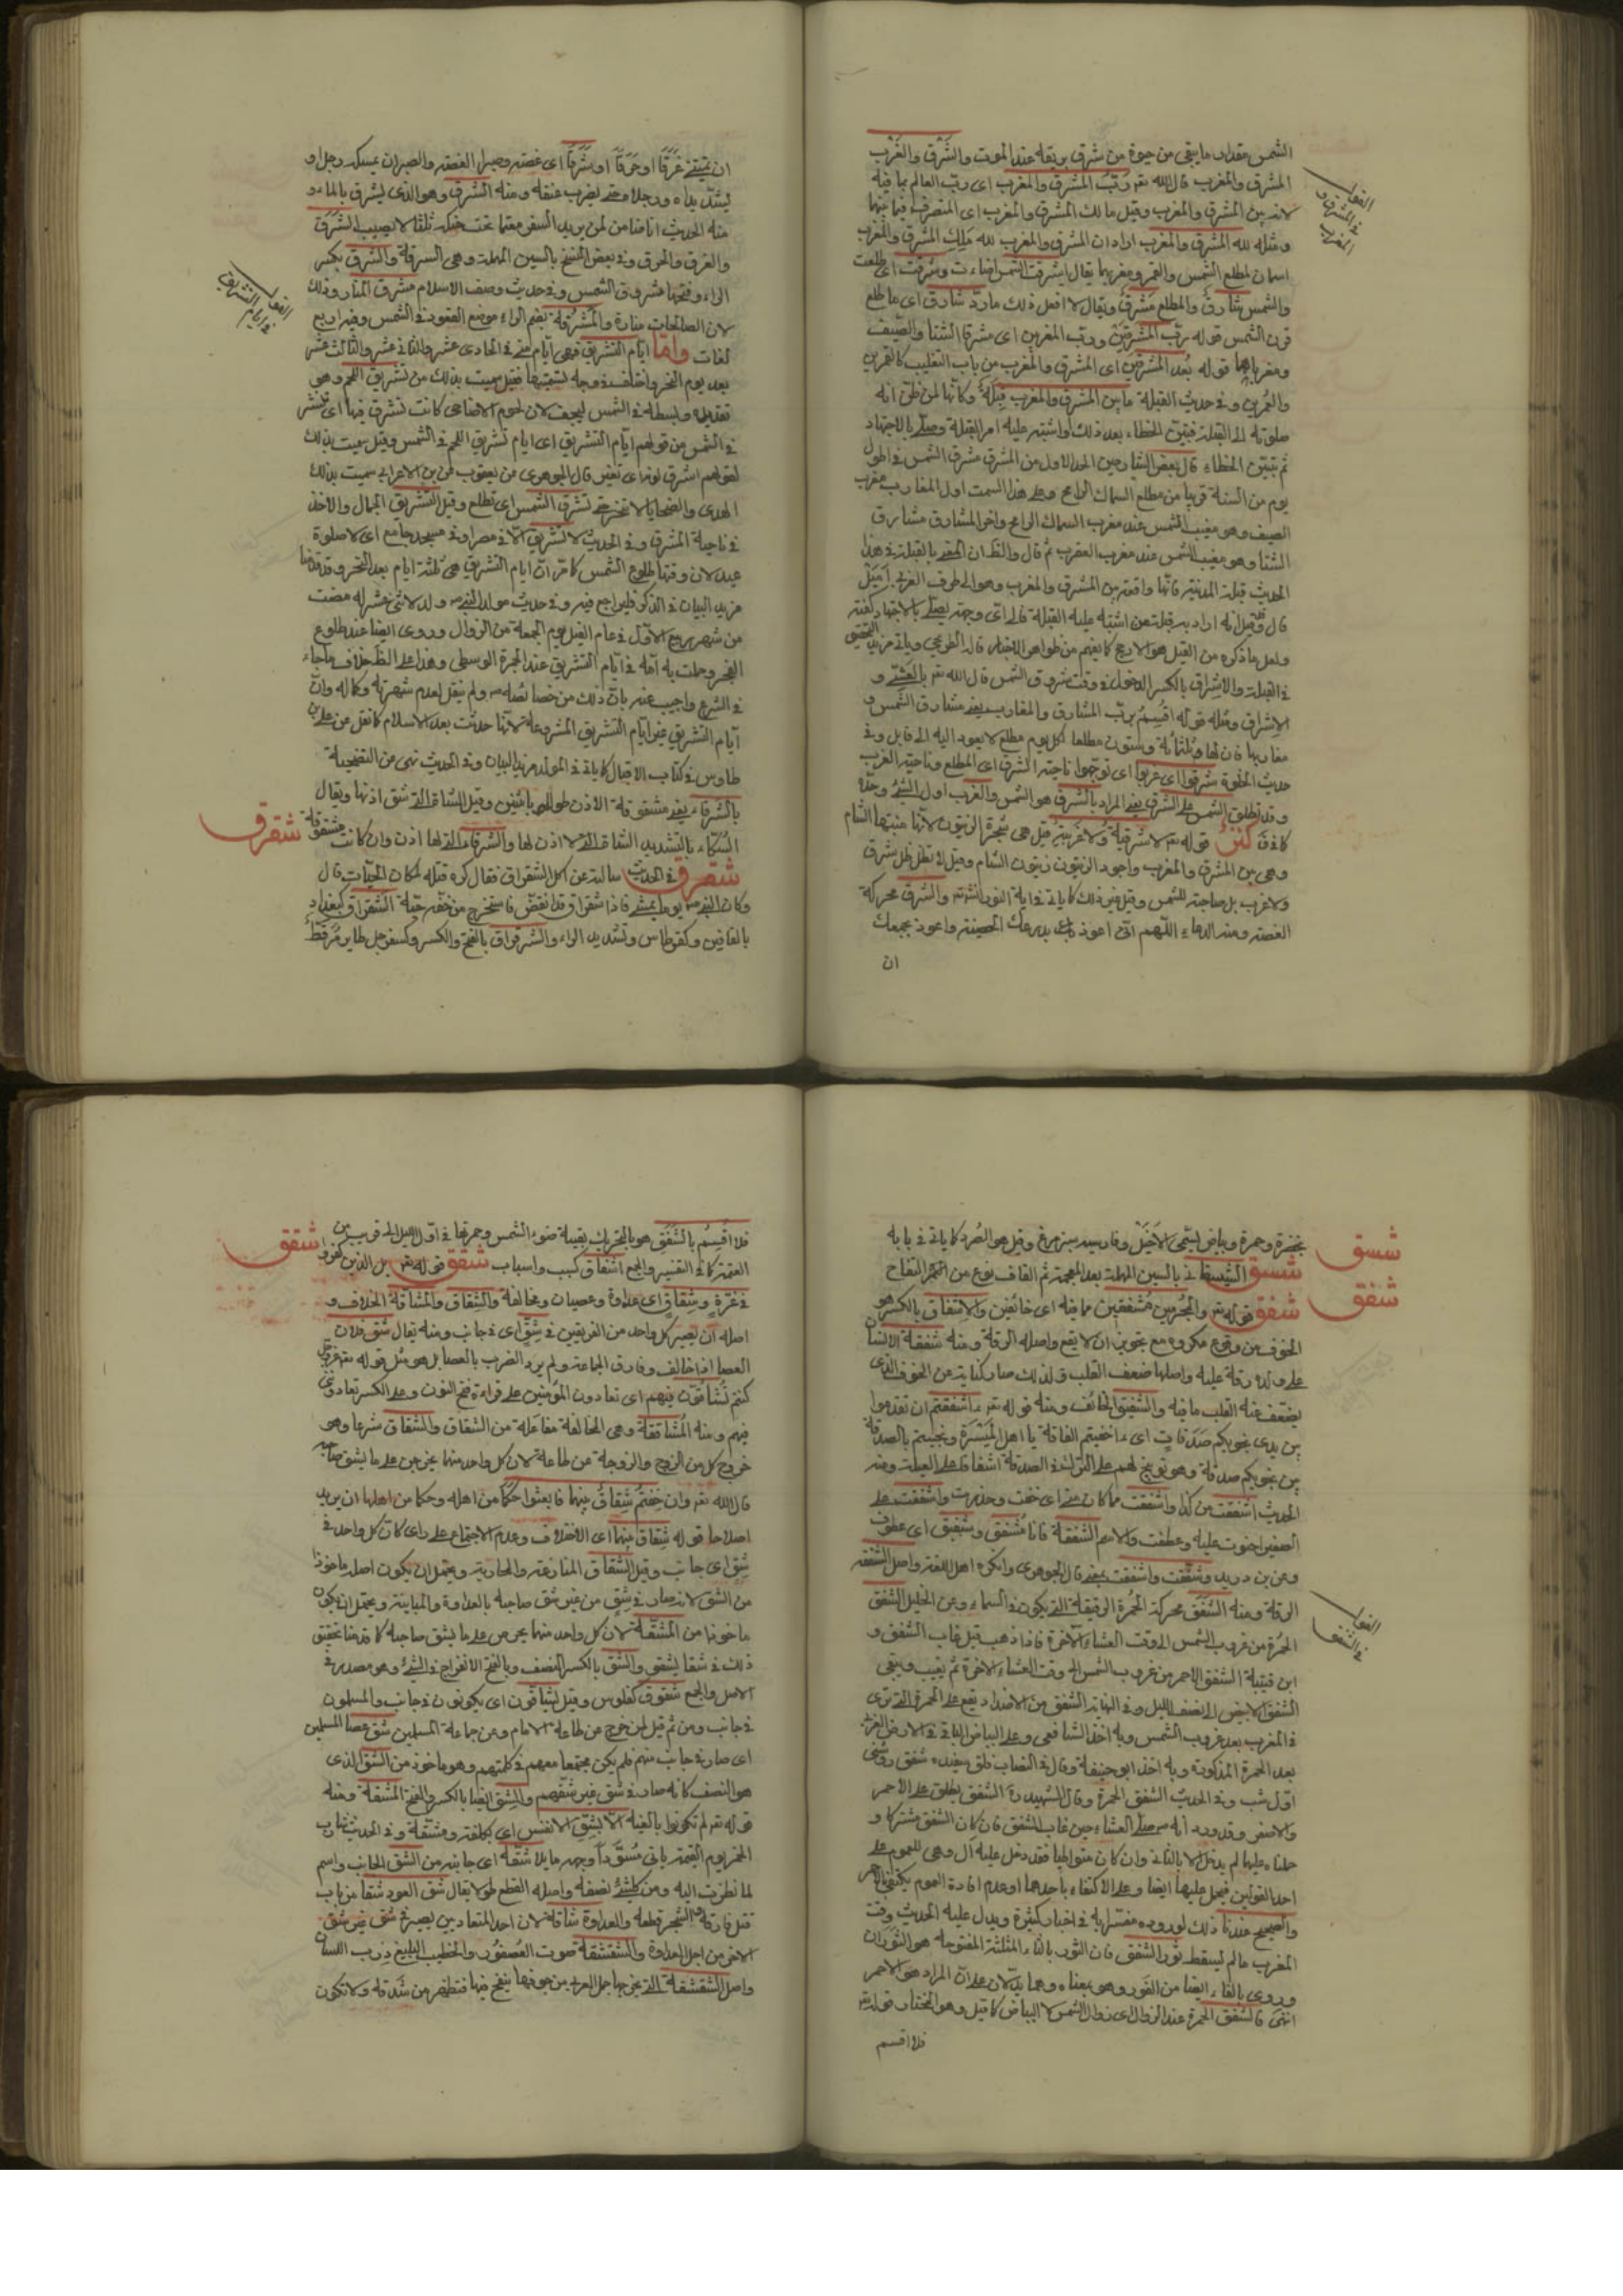 الشمس مقدار ما يبقى من حيوة من شرق بريقه عند الموت والشَّرْق والغَرْب
المشرق والمغرب قال الله تعـ رَبُّ المشرق والمغرب اى ربّ العالم بما فيه
لانه بين المشرق والمغرب وقيل مالك المشرق والمغرب اى المتصرف فيما بينهما
ومثله لله المشرق والمغرب اراد ان المشرق والمغرب لله مَلِك المشرق والمغرب
اسمان لمطلع الشمس والقمر ومغربهما يقال اشرقت الشمس اضاءت وشرقت اى طلعت
والشمس شارقٌ والمطلع مَشرِقٌ ويقال لا افعل ذلك ما ذرّ شارق اى ما طلع
قرن الشمس قوله ربّ المشرقين وربّ المغربين اى مشرقا الشتا والصّيف
ومغرباهما قوله بُعْدَ المشرقين اى المشرق والمغرب من باب التغليب كالقمرين
والعُمَرين وفى حديث القبلة ما بين المشرق والمغرب قِبلَة وكانّها لمن ظنّ انه
صلوته الى القبلة فتبيّن الخطاء بعد ذلك او اشتبه عليه امر القبلة وصلّى بالاجتهاد
ثم تبيّن الخطاء قال بعض الشارحين الحد الاول من المشرق مشرق الشمس فى اطول
يوم من السنة قريبا من مطلع السماك الرامح وعلى هذا السمت اول المغارب مغرب
الصيف وهو مغيب الشمس عند مغرب السماك الرامح واخر المشارق مشارق
الشتا وهو مغيب الشمس عند مغرب العقرب ثم قال والظـ ان المعنى بالقبلة فى هذا
الحديث قبلة المدينة فانّها واقعة بين المشرق والمغرب وهو الى طرف الغربى اَميَل
قال وقيل انه اراد به قبلة من اشتبه عليه القبلة فالى اىّ وجهة يصلّى بالاجتهاد كفته
ولعل ما ذكره من القيل هو الارجح كما يفهم من ظواهر الاخبار قاله الطريحى وياتى مزيد التحقيق
فى القبلة والاِشراق بالكسر الدخول فى وقت شروق الشمس قال الله تعـ بالعَشىّ و
الاشراق ومثله قوله اُقسِمُ بربّ المشارق والمغارب يعنى مشارق الشمس و
مغاربها فان لها ثلثمائة وستون مطلعا لكل يوم مطلع لا يعود اليه الى قابل وفى
حديث الخلوة شرقوا اى غربوا اى توجّهوا ناحية الشرق اى المطلع وناحية الغرب
وقد تطلق الشمس على الشرق يعنى المراد بالشرق هو الشمس والغرب اول الشئ وحدّه
كما فى كنز قوله تعـ لا شرقية ولا غربية قيل هى شجرة الزيتون لانّها منبتها الشام
وهى بين المشرق والمغرب واجود الزيتون زيتون الشام وقيل لا تظل ظل شرق
ولا غرب بل صاحبة للشمس وقيل غير ذلك كما ياتى فى اية النور انشـ والشرق محركة
الغصة ومنه الدعاء اللّهم انّى اعوذ بك بدرعك الحصينة واعوذ بجمعك
ان
الفرق
فى المشرق و
المغرب
ان تميتنى غَرَقًا او حَرَقًا او شَرَقًا اى غصة وصبرا الغصة والصبر ان يمسك رجل او
يشدّ يداه ورجلاه حتى يضرب عنقه ومنه الشرق وهو الذى يشرق بالماء و
منه الحديث انا ضامن لمن يريد السفر معتما تحت حنكه ثلثا لا يصيب الشرق
والغرق والحرق وفى بعض النسخ بالسين المهملة وهى السرقة والشرق بكسر
الراء وفتحها مشروق الشمس وفى حديث وصف الاسلام مشرق المنار وذلك
لان الصالحات منارة والمَشرُقة بضم الراء موضع القعود فى الشمس وفيه اربع
لغات واما ايام التشريق فهى ايام منى فى الحادى عشر والثانى عشر والثالث عشر
بعد يوم النحر واختلف فى وجه تسميتها فقيل سميت بذلك من تشريق اللحم وهو
تقديده وبسطه فى الشمس ليجف لان لحوم الاضاحى كانت تشرق فيها اى تنشر
فى الشمس من قولهم ايّام التشريق اى ايام تشريق اللحم فى الشمس وقيل سميت بذلك
لقولهم اشرق ثبير اى تغير قال الجوهرى من يعقوب عن ابن الاعرابى سميت بذلك
الهدى والضحايا لا تنحر حتى تشرق الشمس اى تطلع وقيل التشريق الجمال والاخذ
فى ناحية المشرق وفى الحديث لا تشريق الّا فى مصر او فى مسجد جامع اى لا صلوة
عيد لان وقتها طلوع الشمس كما مرّ انّ ايام التشريق هى ثلثة ايام بعد النحر وقد قدّمنا
مزيد البيان فى الذكر فليراجع فيه وفى حديث مولد النبى ص ولد لاثنى عشر ليلة مضت
من شهر ربيع الاوّل فى عام الفيل يوم الجمعة من الزوال وروى ايضا عند طلوع
الفجر وحملت به امّه فى ايام التشريق عند الجمرة الوسطى وهذا على الظـ خلاف ما جاء
فى الشرع واجيب عنه بانّ ذلك من خصائصه ص ولم ينقل لعدم شهرته وكماله وانّ
ايام التشريق غير ايام التشريق المشروعة لانّها حدثت بعد الاسلام كما نقل عن على بن
طاوس فى كتاب الاقبال كما ياتى فى المولد مزيد البيان وفى الحديث نهى عن التضحية
بالشرقاء يعنى مشقوقة الاذن طولا باثنين وقيل الشاة التى شق اذنها ويقال
السّكاء بالتشديد الشاة التى لا اذن لها والشرقاء التى لها اذن وان كانت مشقوقة
شقرق فى الحديث سالته عن اكل الشقراق فقال كره قتله لمكان الحيّات قال
وكان النبى ص يوما يمشى فاذا شقراق قد انقضّ فاستخرج من خفّه حيّة الشقراق كبغداد
بالقافين وكقرطاس وتشديد الراء والشرقراق بالفتح والكسر وكسفرجل طاير مُرَقّط
شقرق
الفرق
فى ايام التشريق
بخضرة وحمرة وبياض يسمّى الاَخيَل وفارسيه سبز مرغ وقيل هو الصُرد كما ياتى فى بابه
شسق الشيسقا فى بالسين المهملة بعد المعجمة ثم القاف نوع من الثمر التفاح
شفق قوله تعـ والمجرمين مشفقين مما فيه اى خائفين والاشفاق بالكسر هو
الخوف من وقوع مكروه مع تجويز ان لا يقع واصله الرقة ومنه شفقة الانسان
على ولده رقة عليه واصلها ضعف القلب ولذلك صار كناية عن الخوف الذى
يضعف عنه القلب ما فيه والشفيق الخائف ومنه قوله تعـ ءاشفقتم ان تقدموا
بين يدى نجويكم صَدَقاتٍ اى ءاخفيتم الفاقة يا اهل المَيْسَرَة وبخلتم بالصدقة
بين نجويكم صدقة وهو توبيخ لهم على الترك فى الصدقة اشفاقا على العيلة ومنه
الحديث اشفقت من كذا واشفقت مما كان منى اى خفت وحذرت واشفقت على
الصغير احنوت عليه وعطفت والاسم الشفقة فانا مُشفق وشفيق اى عطوف
وعن بن دريد وشفقت واشفقت بمعنى قال الجوهرى وانكره اهل اللغة واصل الشفقة
الرقة ومنه الشفق محركة الحُمرة الرقيقة التى يكون فى السماء وعن الخليل الشفق
الحمرة من غروب الشمس الى وقت العشاء الاخرة فاذا ذهب قيل غاب الشفق و
ابن قتيبة الشفق الاحمر من غروب الشمس الى وقت العشاء الاخرة ثم يغيب ويبقى
الشفق الابيض الى نصف الليل وفى النهاية الشفق من الاضداد يقع على الحمرة التى ترى
فى المغرب بعد غروب الشمس وبه اخذ الشافعى وعلى البياض الباقى فى الارض الغربى
بعد الحمرة المذكورة وبه اخذ ابو حنيفة وقال فى النصاب فلق سپيده شفق روشنى
اول شب وفى الحديث الشفق الحمرة وقال الشهيد رة الشفق يطلق على الاحمر
والاصفر وقد ورد انه ص صلى العشاء حين غاب الشفق فان كان الشفق مشتركا و
حملناه عليهما لم يدخل الا بالثانى وان كان متواطيا فقد دخل عليه ال وهى للعموم على
احد القولين فيحمل عليهما ايضا وعلى الاكتفاء باحدهما او عدم افادة العموم يكتفى بالاحمر
والصحيح عندنا ذلك لوروده مفسّرا به فى اخبار كثيرة ويدل عليه الحديث وقت
المغرب ما لم يسقط ثور الشفق فان الثور بالثاء المثلثة المفتوحة هو الثوران
وروى بالفاء ايضا من الفور وهو بمعناه وهما يدلّان على انّ المراد هو الاحمر
انتهى فالشفق الحمرة عند الزوال اى زوال الشمس لا البياض كما قيل وهو المختار قوله تعـ
فلا اقسم
شسق
شفق
الفرق
فى الشفق
فلا اقسم بالشَفَق هو بالتحريك بقية ضوء الشمس وحمرتها فى اوّل الليل الى قريب من
العتمة كما فى التفسير والجمع اشفاق كسبب واسباب شقق قوله تعـ بل الذين كفروا
فى عزّة وشقاق اى عداوة وعصيان ومخالفة والشقاق والمشاقة الخلاف و
اصله ان يصير كل واحد من الفريقين فى شِقّ اى فى جانب ومنه يقال شق فلان
العصا اذا خالف وفارق الجماعة ولم يرد الضرب بالعصا بل هو مثل قوله تعـ عزوجل
كنتم تُشاقّون فيهم اى تعادون المؤمنين على قراءة فتح النون وعلى الكسر تعادوننى
فيهم ومنه المُشاققة وهى المخالفة مفاعلة من الشقاق والشقاق شرعا وهو
خروج كل من الزوج والزوجة عن طاعة لان كل واحد منهما يحرص على ما يشق صاحبه
قال الله تعـ وان خِفتُم شِقاقَ بينهما فابعثوا حَكَمًا من اهله وحكما من اهلها ان يريد
اصلاحا قوله شِقاق بينهما اى الاختلاف وعدم الاجتماع على راى كانّ كل واحد فى
شِقّ اى جانب وقيل الشقاق المنازعة والمحاربة ويحتمل ان يكون اصله ماخوذا
من الشق لانه صار فى شق من غير شق صاحبه بالعداوة والمباينة ويحتمل ان يكون
ماخوذا من المشقّة لان كل واحد منهما يحرص على ما يشق صاحبه كما قدمنا تحقيق
ذلك فى شقا يشقى والشق بالكسر النصف وبالفتح الانفراج فى الشئ وهو مصدر فى
الاصل والجمع شقوق كفلوس وقيل يشاقّون اى يكونون فى جانب والمسلمون
فى جانب ومن ثم قيل لمن خرج عن طاعة الامام وعن جماعة المسلمين شق عصا المسلمين
اى صار فى جانب منهم فلم يكن مجتمعا معهم فى كلمتهم وهو ماخوذ من الشق الذى
هو النصف كانّه صار فى شق غير شقهم والشق ايضا بالكسر والفتح المشقة ومنه
قوله تعـ لم تكونوا بالغيه الّا بشِقّ الانفس اى بكلفة ومشقّة وفى الحديث شارب
الخمر يوم القيمة ياتى مُسوَدّا وجهه مايلا شقّه اى جانبه من الشق الجانب واسم
لما نظرت اليه ومن كل شئ نصفه واصله القطع طولا يقال شق العود شقا من باب
قتل فارقه من الشجر قطعه والعداوة شاقة لان احد المتعادين يصير فى شق غير شق
الاخر من اجل العداوة والشقشقة صوت العُصفُور والخطيب البليغ ذرب اللسان
واصل الشقشقة التى يخرجها جمل العربى من جوفها ينفخ فيها فتظهر من شدقه ولا تكون
شقق